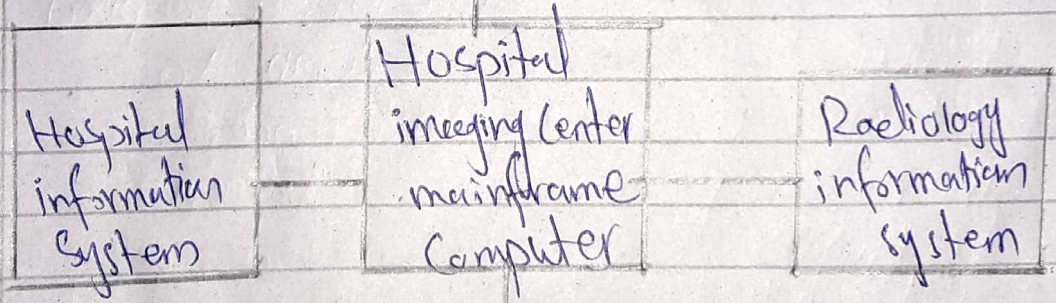 Hospital
information
System
Hospital
imaging Center
mainframe
Computer
Radiology
information
system